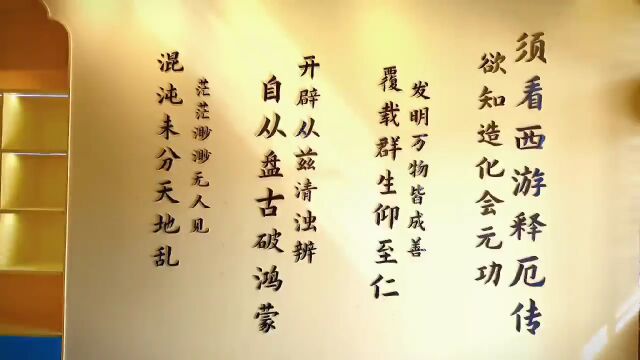 混沌未分天地乱
茫茫渺渺无人见
自从盘古破鸿蒙
开辟从兹清浊辨
覆载群生仰至仁
发明万物皆成善
欲知造化会元功
须看西游释厄传